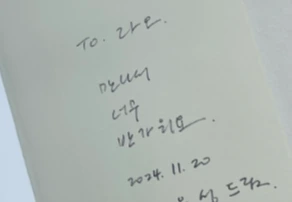 To. 라온.
만나서
너무
반가워요.
2024.11.20
드림.